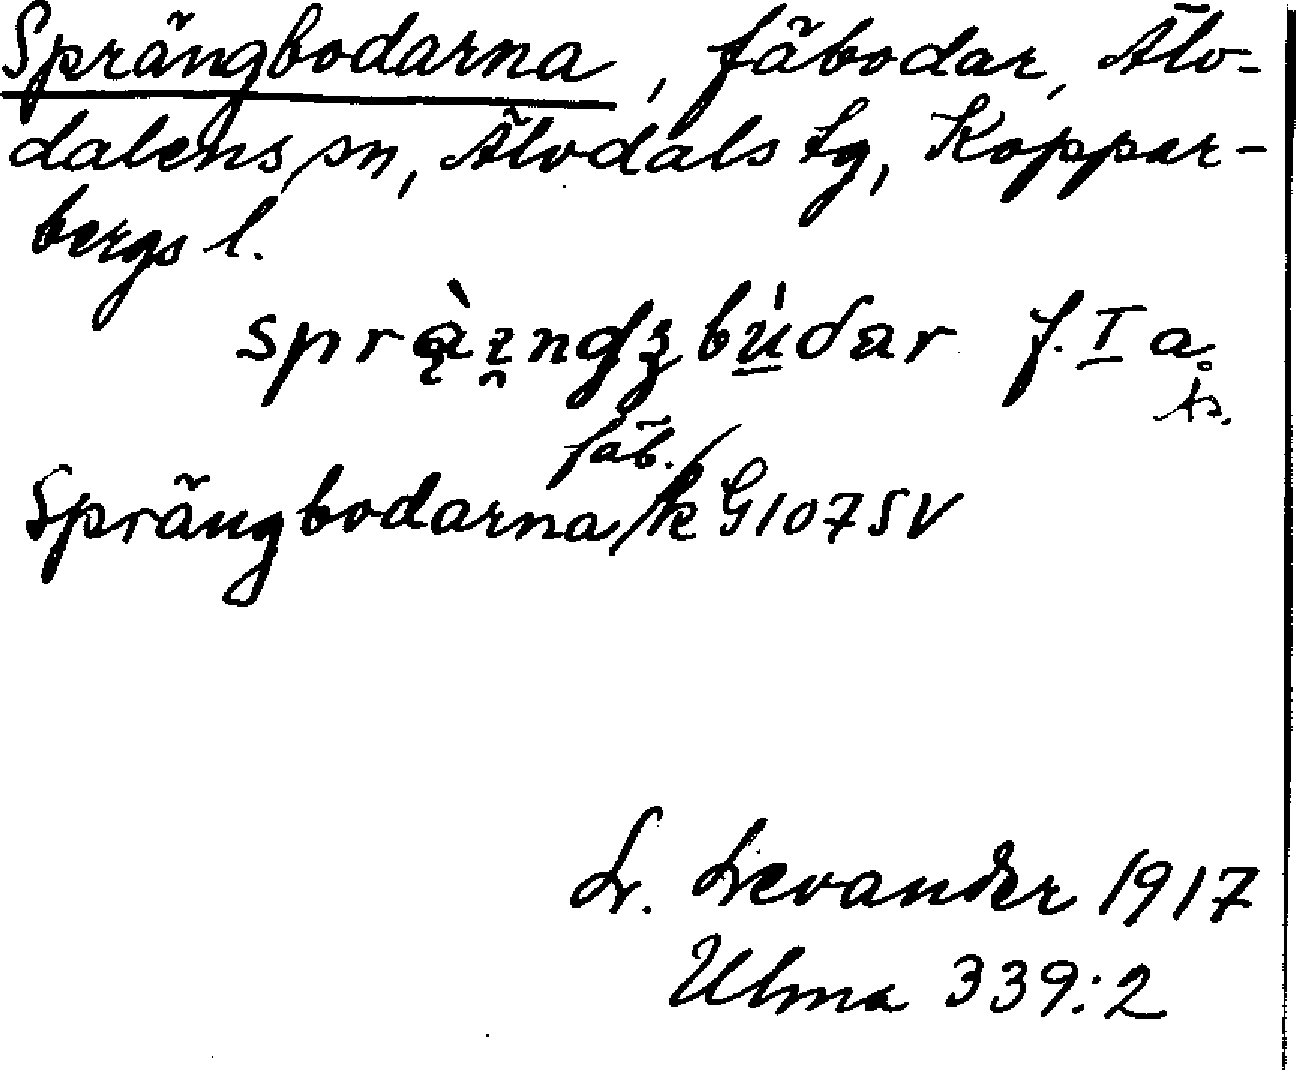 Sprängbodarna, fäbodar, Älv-
dalens sn, Älvdals tg, Koppar-
bergs l.
f. I a.
fäb.
Sprängbodarna / k G107SV
L. Levander 1917
Ulma 339:2